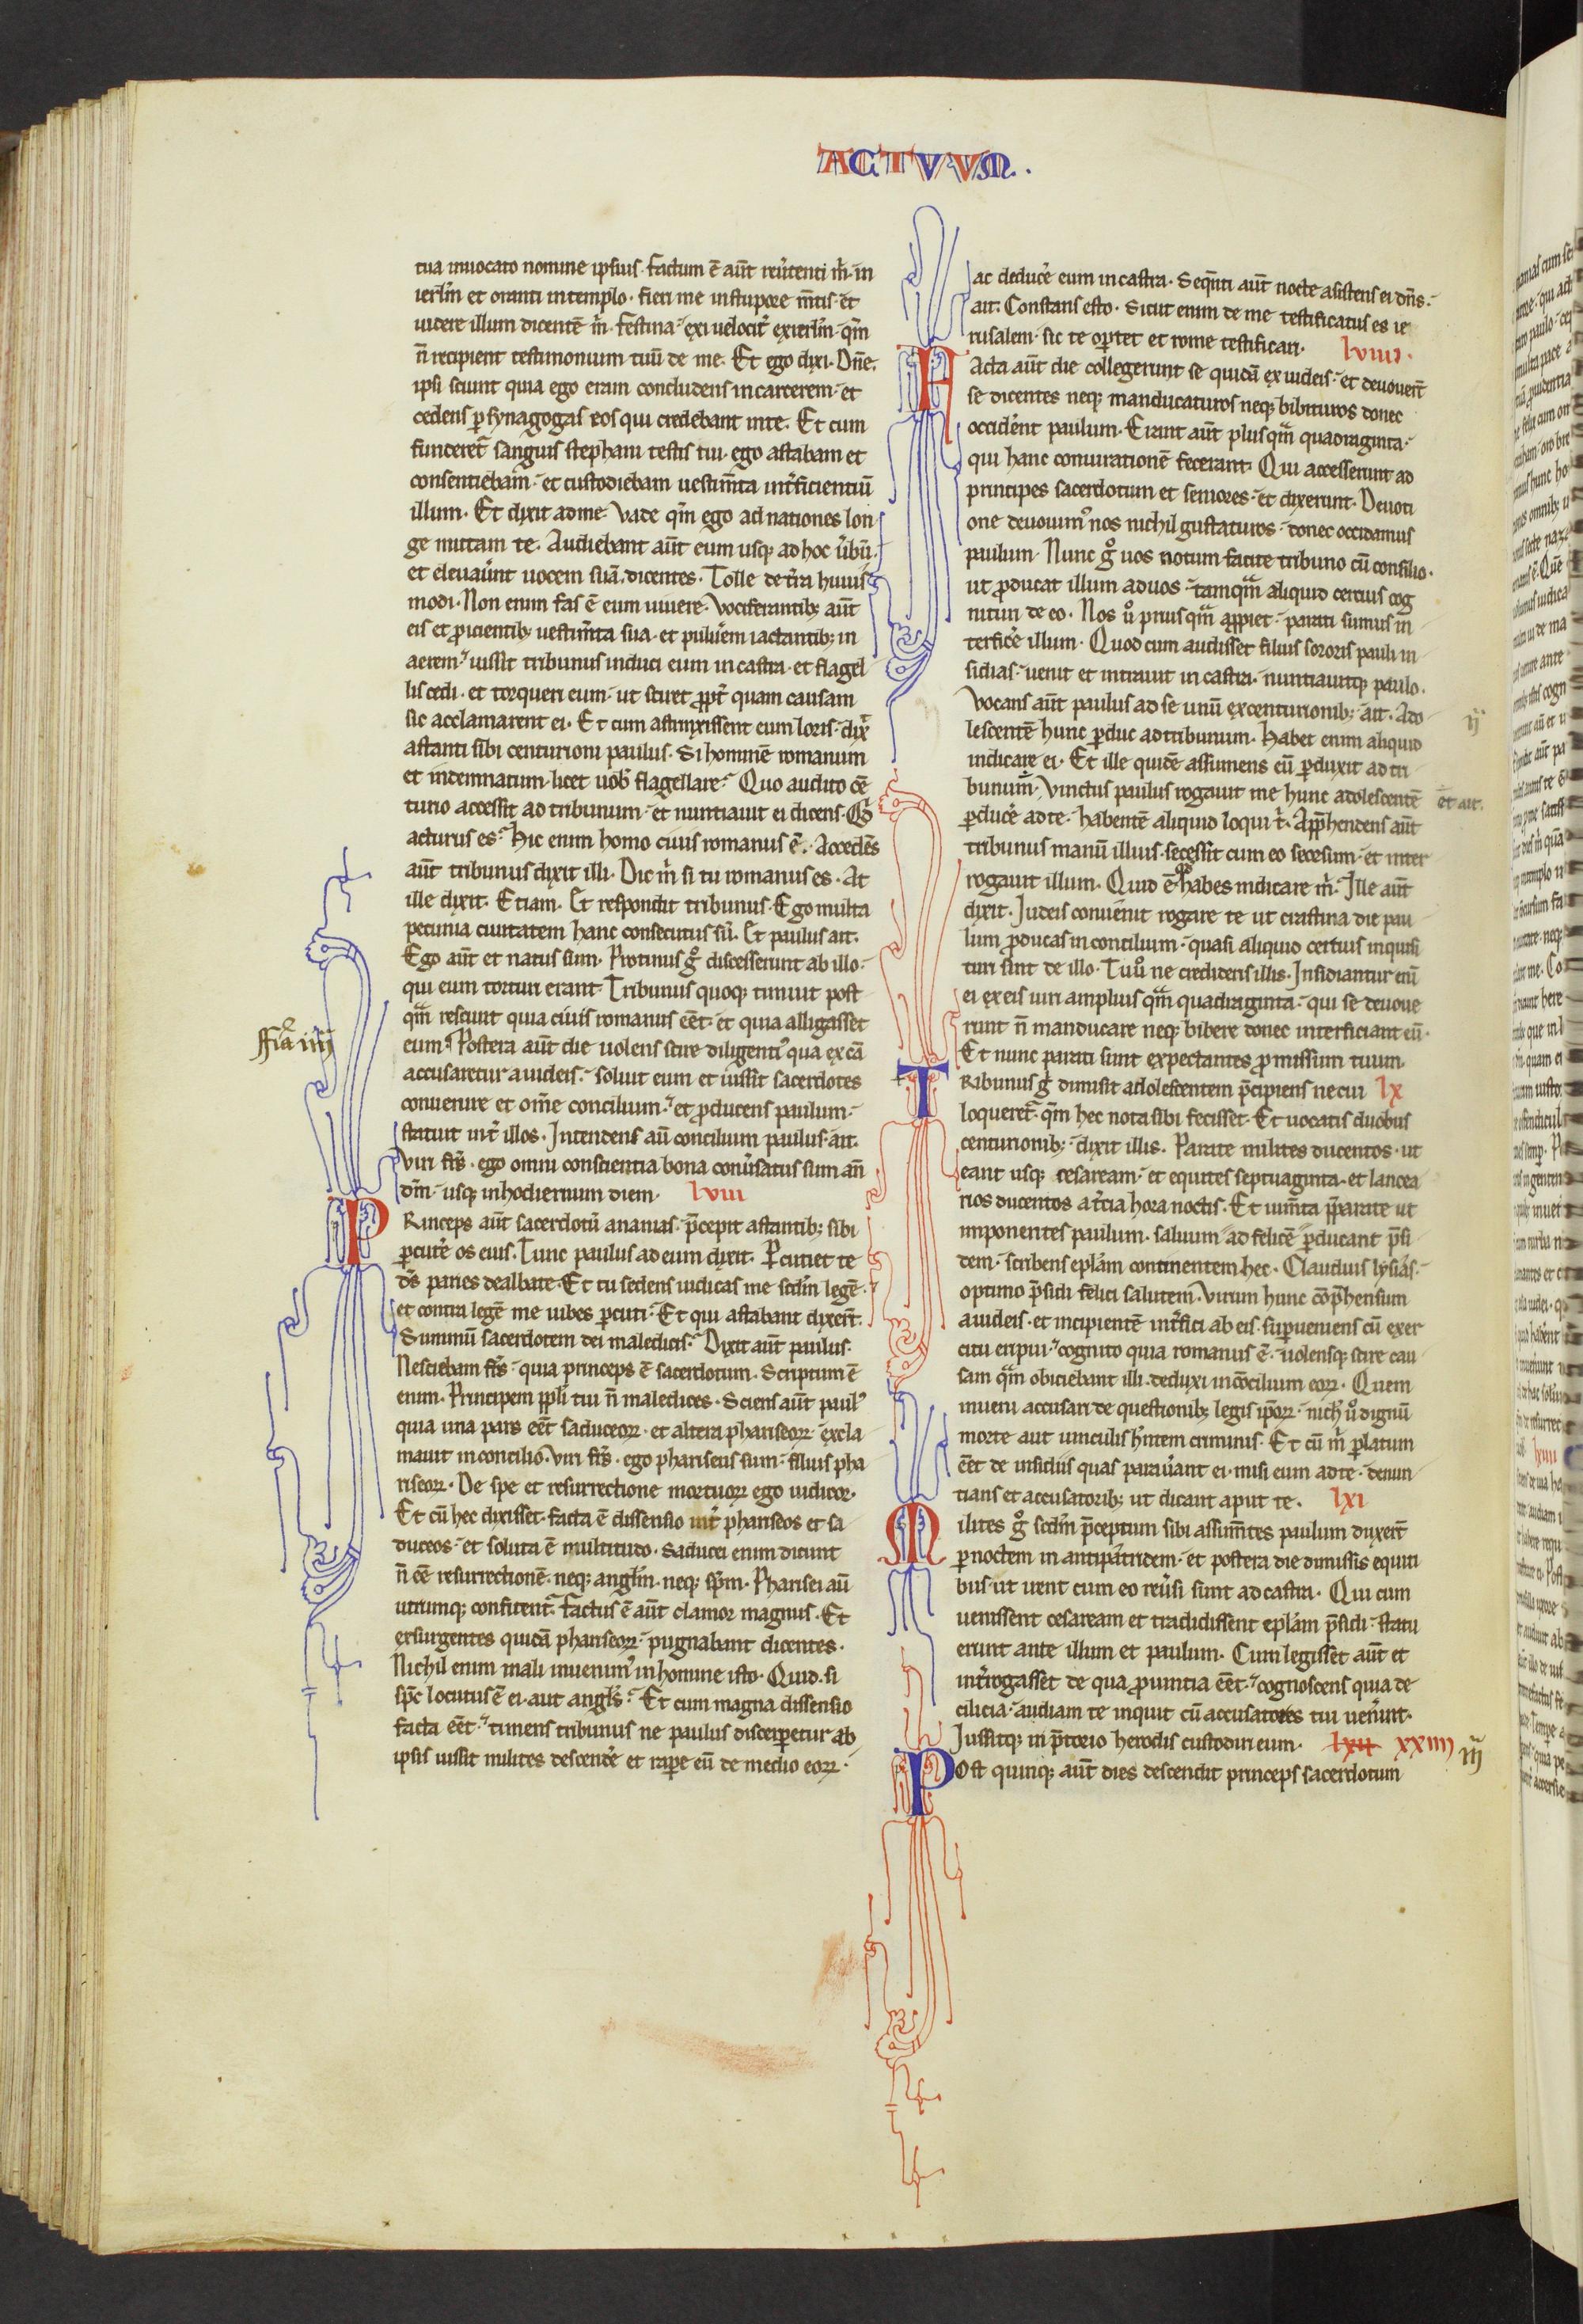 ACTVVM.
tua inuocato nomine ipsius. factum ē aūt reũtenti m̄. in
ierl̄m et oranti in templo. fieri me in stupore m̄tis. et
uidere illum dicentē m̄. festina. exi uelocit̄ ex ierl̄m. qm̄
n̄ recipient testimonium tuū de me. Et ego dixi. Dn̄e.
ipsi sciunt quia ego eram concludens in carcerem. et
cedens p̱ synagogas eos qui credebant in te. Et cum
funderet̄ sanguis stephani testis tui. ego astabam et
consentiebam. et custodiebam uestim̄ta int̄ficientiū
illum. Et dixit ad me. Vade qm̄ ego ad nationes lon
ge mittam te. Audiebant aūt eum usq; ad hoc ūbū.
et eleuaūnt uocem suā. dicentes. Tolle de t̄ra huius
modi. Non enim fas ē eum uiuere. Vociferantib; aūt
eis et ꝓicientib; uestim̄ta sua. et puluēm iactantib; in
aerem. iussit tribunus induci eum in castra. et flagel
lis cedi. et torqueri eum. ut sciret ꝓpt̄ quam causam
sic acclamarent ei. Et cum astrinxissent eum loris. dix̄
astanti sibi centurioni paulus. Si hominē romanum
et indemnatum. licet uob̄ flagellare. Quo audito cē
turio accessit ad tribunum. et nuntiauit ei dicens. Qͥd
acturus es. Hic enim homo ciuis romanus ē. Accedēs
aūt tribunus dixit illi. Dic m̄ si tu romanus es. At
ille dixit. Etiam. Et respondit tribunus. Ego multa
pecunia ciuitatem hanc consecutus sū. Et paulus ait.
Ego aūt et natus sum. Protinus gͦ discesserunt ab illo.
qui eum torturi erant. Tribunus quoq; timuit post
qͣm resciuit quia ciuis romanus eēt. et quia alligasset
eum. Postera aūt die uolens scire diligentiͥ qua ex cā
accusaretur a iudeis. soluit eum et iussit sacerdotes
conuenire et om̄e concilium. et ꝓducens paulum.
statuit int̄ illos. Intendens aū concilium paulus. ait.
Viri fr̄s. ego omni conscientia bona conūsatus sum an̄
dm̄. usq; in hodiernum diem. lviii
fr̄ia iiij
PRinceps aūt sacerdotū ananias. p̄cepit astantib; sibi
p̱cutē os eius. Tunc paulus ad eum dixit. P̱cutiet te
ds̄ paries dealbate. Et tu sedens iudicas me scdm̄ legē.
et contra legē me iubes p̱cuti. Et qui astabant dixer̄t.
Summū sacerdotem dei maledicis. Dixit aūt paulus.
Nesciebam fr̄s. quia princeps ē sacerdotum. Scriptum ē
enim. Principem ppl̄i tui n̄ maledices. Sciens aūt paulꝰ
quia una pars eēt saduceoꝝ. et altera phariseoꝝ. excla
mauit in concilio. Viri fr̄s. ego phariseus sum. filius pha
riseoꝝ. De spe et resurrectione mortuoꝝ ego iudicor.
Et cū hec dixisset. facta ē dissensio int̄ phariseos et sa
duceos. et soluta ē multitudo. Saducei enim dicunt
n̄ eē resurrectionē. neq; angl̄m. neq; sp̄m. Pharisei aū
utrumq; confitent̄. factus ē aūt clamor magnus. Et
exsurgentes quidā phariseoꝝ. pugnabant dicentes.
Nichil enim mali inuenimꝰ in homine isto. Quid. si
sp̄c locutus ē ei. aut angl̄s. Et cum magna dissensio
facta eēt. timens tribunus ne paulus discerp̱etur ab
ipsis iussit milites descendē et rap̱e eū de medio eoꝝ.
ac deducē eum in castra. Seqn̄ti aūt nocte asistens ei dn̄s.
ait. Constans esto. Sicut enim de me testificatus es ie
rusalem. sic te op̱tet et rome testificari. lviiii.
FActa aūt die collegerunt se quidā ex iudeis. et deuouer̄t
se dicentes neq; manducaturos neq; bibituros donec
occidēnt paulum. Erant aūt plus qͣm quadraginta.
qui hanc coniurationē fecerant. Qui accesserunt ad
principes sacerdotum et seniores. et dixerunt. Deuoti
one deuouimꝰ nos nichil gustaturos. donec occidamus
paulum. Nunc gͦ uos notum facite tribuno cū consilio.
ut ꝓducat illum ad uos. tamqͣm aliquid certius cog
nituri de eo. Nos ūͦ prius qͣm app̱iet. parati sumus in
terficē illum. Quod cum audisset filius sororis pauli in
sidias. uenit et intrauit in castra. nuntiauitq; paulo.
Vocans aūt paulus ad se unū ex centurionib;. ait. Ado
lescentē hunc p̱duc ad tribunum. Habet enim aliquid
indicare ei. Et ille quidē assumens eū p̱duxit ad tri
bunum. Vinctus paulus rogauit me hunc adolescentē et ait.
p̱ducē ad te. habentē aliquid loqui t̄. App̄hendens aūt
tribunus manū illius. secessit cum eo seorsum. et inter
rogauit illum. Quid ē qͦd habes indicare m̄. Ille aūt
dixit. Iudeis conuenit rogare te ut crastina die pau
lum ꝓducas in concilium. quasi aliquid certius inquisi
turi sint de illo. Tu ūͦ ne credideris illis. Insidiantur eni
ei ex eis uiri amplius qͣm quadraginta. qui se deuoue
runt n̄ manducare neq; bibere donec interficiant eū.
Et nunc parati sunt expectantes ꝓmissum tuum.
TRibunus gͦ dimisit adolescentem p̄cipiens ne cui lx
loqueret̄. qm̄ hec nota sibi fecisset. Et uocatis duobus
centurionib;. dixit illis. Parate milites ducentos. ut
eant usq; cesaream. et equites septuaginta. et lancea
rios ducentos a t̄cia hora noctis. Et ium̄ta p̄parate ut
imponentes paulum. saluum ad felicē p̱ducant p̄si
dem. scribens epl̄am continentem hec. Claudius lysias.
optimo p̄sidi felici salutem. Virum hunc cōp̄hensum
a iudeis. et incipientē int̄fici ab eis. sup̱ueniens cū exer
citu eripui. cognito quia romanus ē. uolensq; scire cau
sam qͣm obiciebant illi. deduxi in cōcilium eoꝝ. Quem
inueni accusari de questionib; legis ip̄oꝝ. nichil ūͦ dignū
morte aut uinculis hn̄tem criminis. Et cū m̄ p̱latum
eēt de insidiis quas parauēant ei. misi eum ad te. denun
tians et accusatorib; ut dicant aput te. lxi
MIlites gͦ scdm̄ p̄ceptum sibi assum̄tes paulum duxer̄t
p̱ noctem in antipatridem. et postera die dimissis equiti
bus. ut irent cum eo reūsi sunt ad castra. Qui cum
uenissent cesaream et tradidissent epl̄am p̄sidi. statu
erunt ante illum et paulum. Cum legisset aūt et
int̄rogasset de qua ꝓuintia eēt. cognoscens quia de
cilicia. audiam te inquit cū accusatores tui uen̄int.
Iussitq; in p̄torio herodis custodiri eum. lxii xxiiii
POst quinq; aūt dies descendit princeps sacerdotum